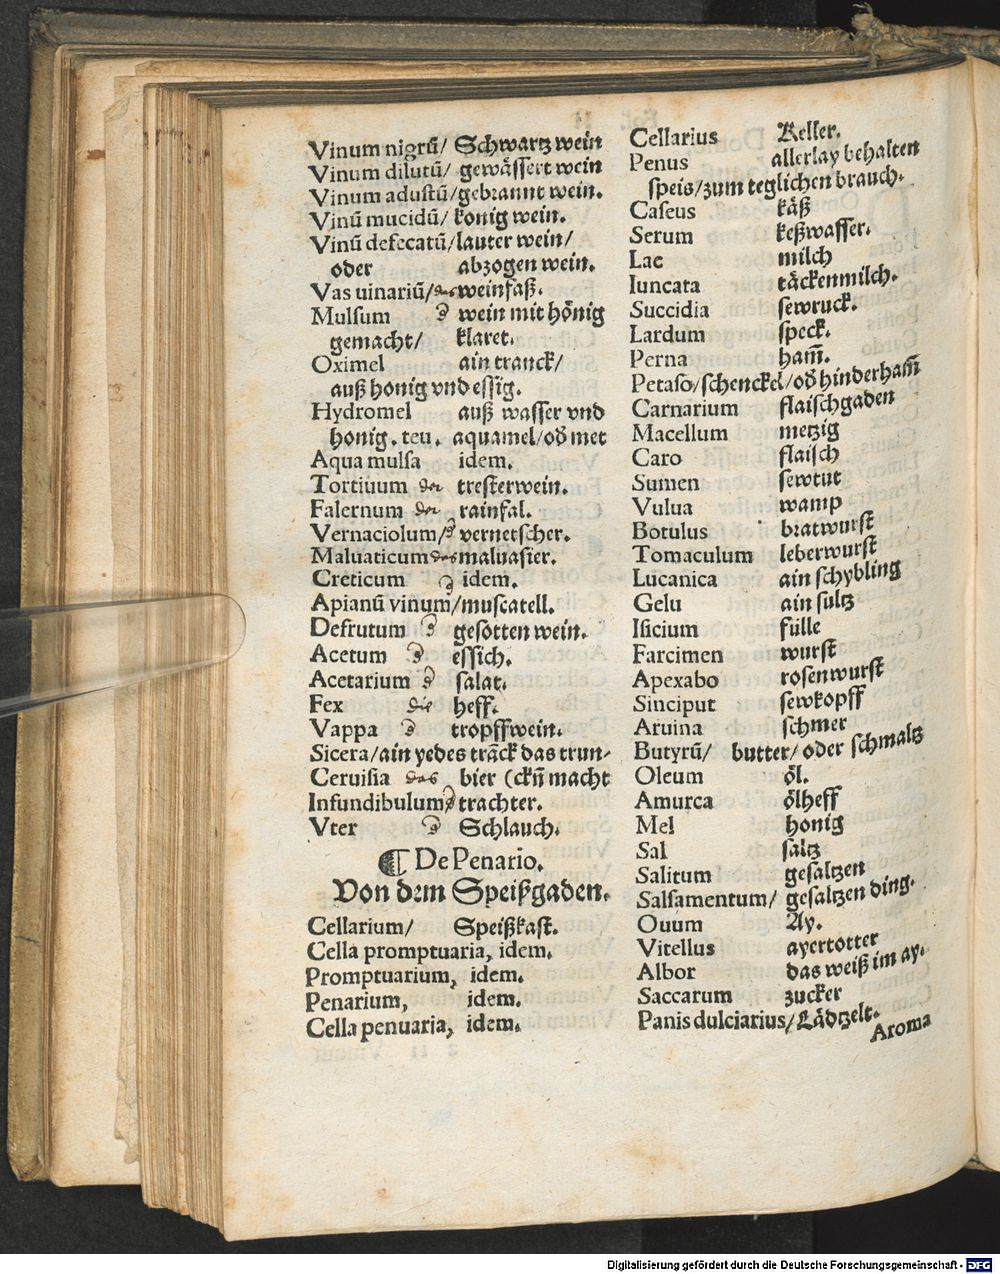 Vinum nigrũ/ Schwartz wein
Vinum dilutũ/ gewässert wein
Vinum adustũ/gebrannt wein.
Vinũ mucidũ/ konig wein.
Vinũ defecatũ/lauter wein/
oder abzogen wein.
Vas uinariũ/das weinfaß.
Mulsum wein mit hönig
gemacht/ klaret.
Oximel ain tranck/
auß honig vnd essig.
Hydromel auß wasser vnd
honig. teu. aquamel/oď met
Aqua mulsa idem.
Tortiuum der tresterwein.
Falernum der rainfal.
Vernaciolum/ vernetscher.
Maluaticum das maluasier.
Creticum idem.
Apianũ vinum/muscatell.
Defrutum gesotten wein.
Acetum essich.
Acetarium salat.
Fex die heff.
Vappa tropffwein.
Sicera/ain yedes trãck das trun-
Ceruisia das bier (ckñ macht
Infundibulum trachter.
Vter Schlauch.
¶ De Penario.
Von dem Speißgaden.
Cellarium/ Speißkast.
Cella promptuaria, idem.
Promptuarium, idem.
Penarium, idem.
Cella penuaria, idem.
Cellarius Keller.
Penus allerlay behalten
speis/zum teglichen brauch.
Caseus käß
Serum keßwasser.
Lac milch
Iuncata täckenmilch.
Succidia sewruck.
Lardum speck.
Perna ham̃.
Petaso/schenckel/oď hinderham̃
Carnarium flaischgaden
Macellum metzig
Caro flaisch
Sumen sewtut
Vulua wamp
Botulus bratwurst
Tomaculum leberwurst
Lucanica ain schybling
Gelu ain sultz
Isicium fülle
Farcimen wurst
Apexabo rosenwurst
Sinciput sewkopff
Aruina schmer
Butyrũ/ butter/ oder schmaltz
Oleum öl.
Amurca ölheff
Mel honig
Sal saltz
Salitum gesaltzen
Salsamentum/ gesaltzen ding.
Ouum Ay.
Vitellus ayertotter
Albor das weiß im ay.
Saccarum zucker
Panis dulciarius/Lädtzelt.
Aroma
Digitalisierung gefördert durch die Deutsche Forschungsgemeinschaft - DFG